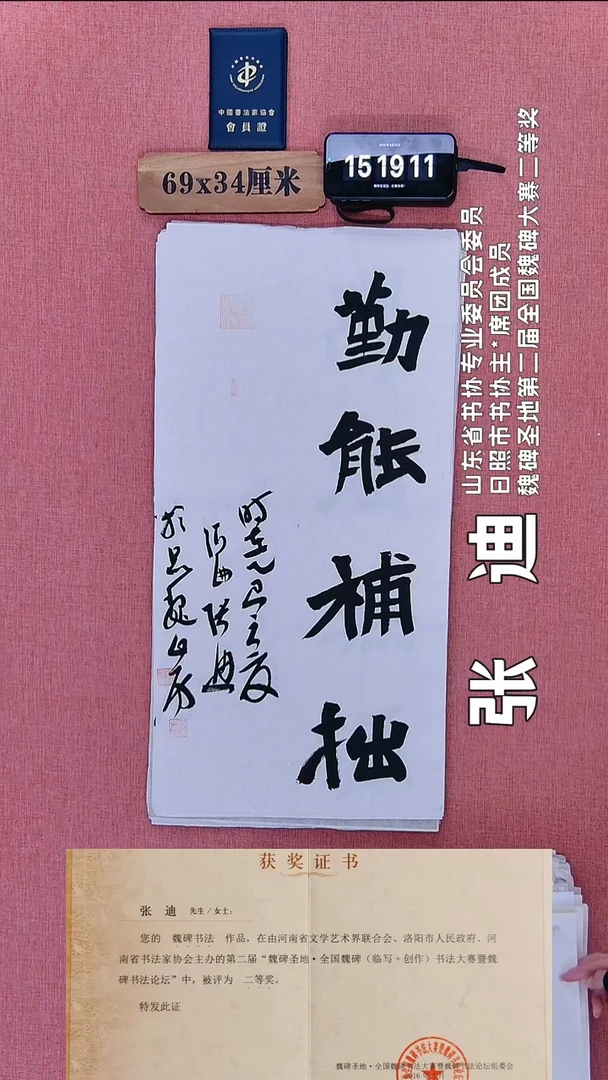 中國書法家協會
會員證
69x34厘米
15 19 11
山东省书协专业委员会委员
日照市书协主*席团成员
魏碑圣地第二届全国魏碑大赛二等奖
张 迪
勤能補拙
获奖证书
张 迪 先生/女士：
您的 魏碑书法 作品，在由河南省文学艺术界联合会、洛阳市人民政府、河
南省书法家协会主办的第二届“魏碑圣地·全国魏碑（临写+创作）书法大赛暨魏
碑书法论坛”中，被评为 二等奖。
特发此证
魏碑圣地·全国魏碑书法大赛暨魏碑书法论坛组委会